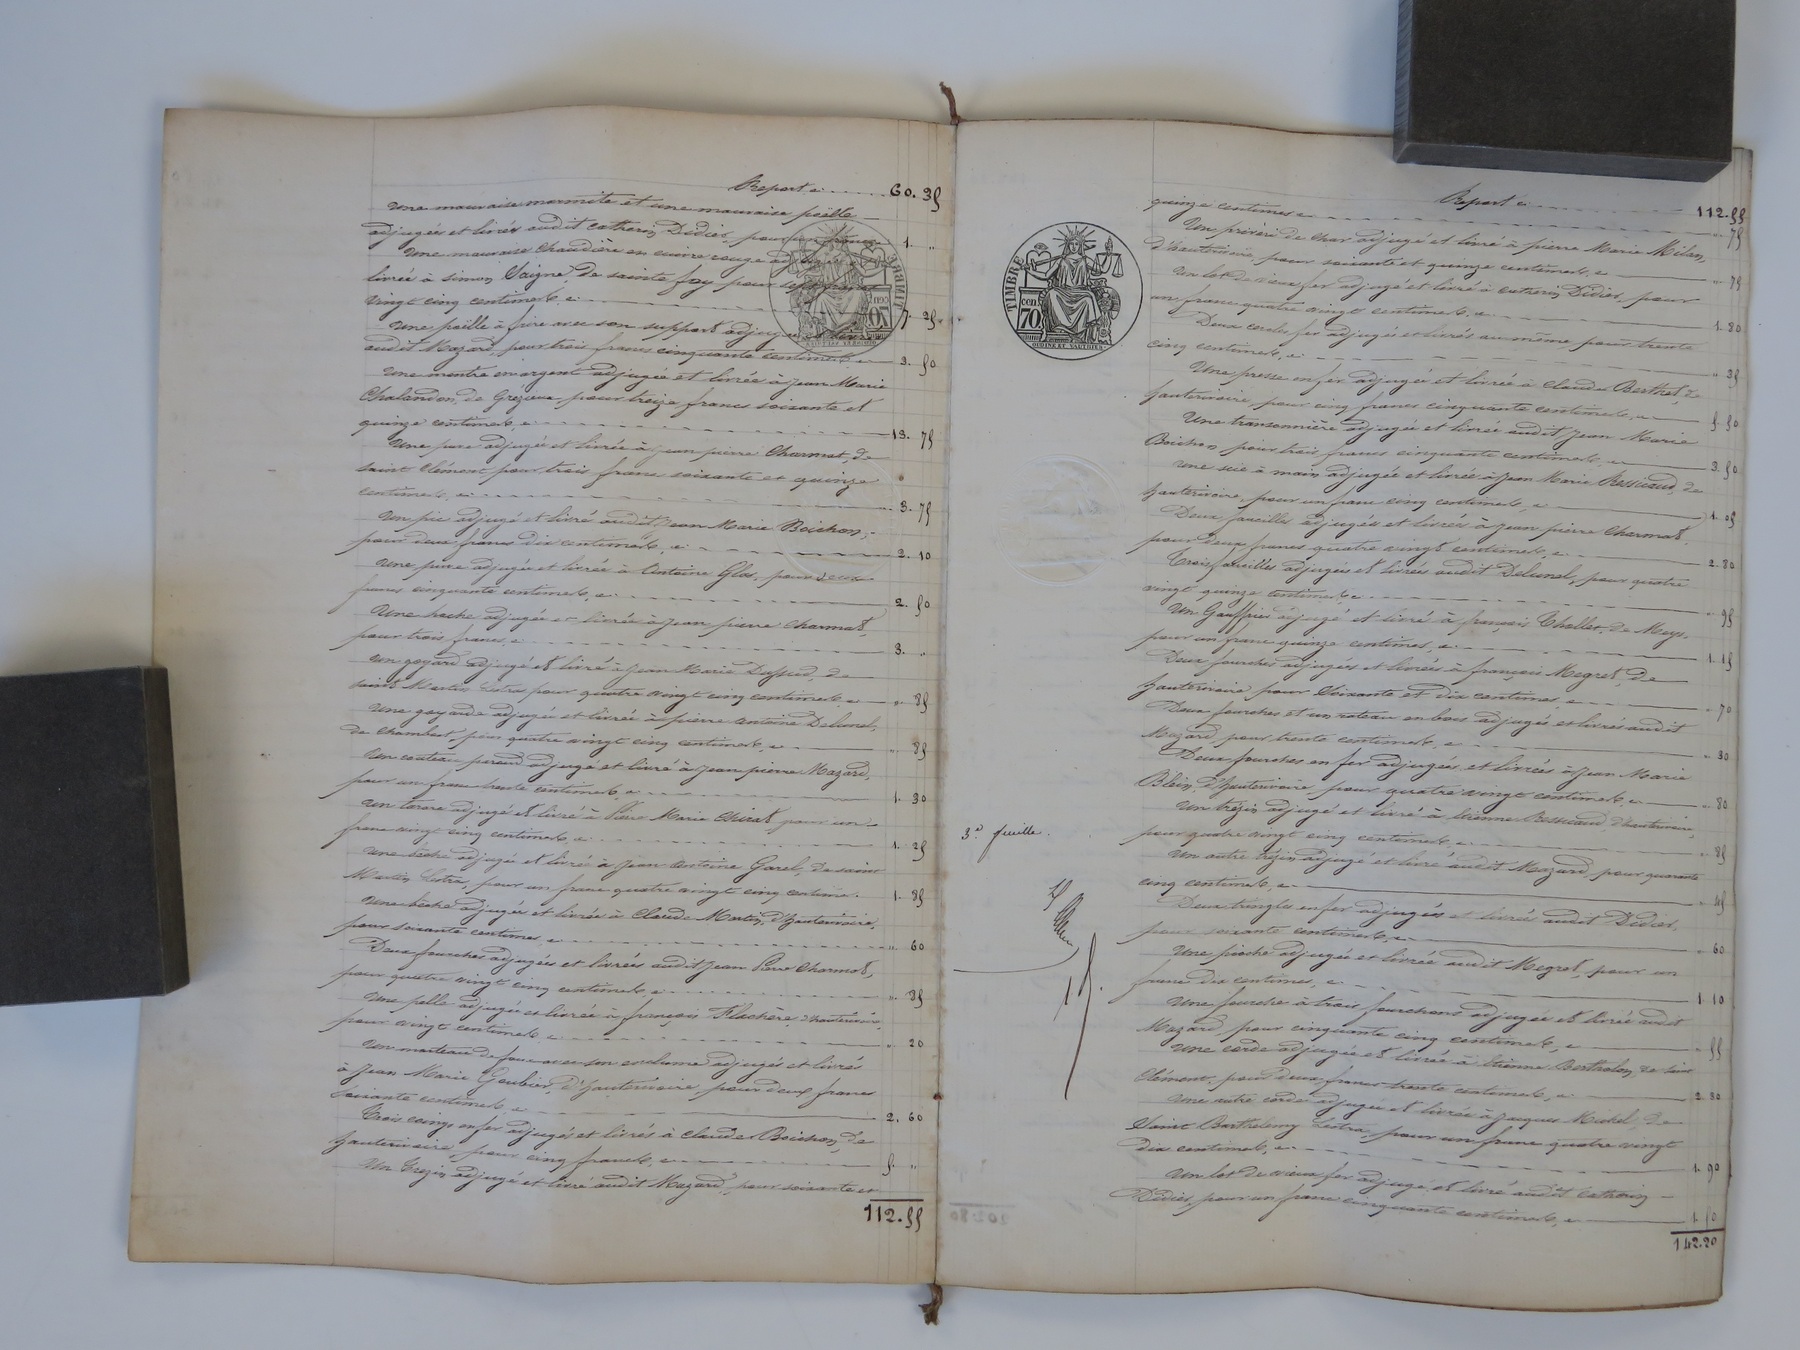 Report 60.35
Une mauvaise marmite et une mauvaise poële
adjugés et livrés audit Catherin Didier, pour un franc 1. "
Une mauvaise chaudière en cuivre rouge adjugée et
livrée à Simon de Sainte foy pour sept francs
vingt cinq centimes, ci 7. 25
Une poële à frire avec son support adjugés et livrés
audit Mazard, pour trois francs cinquante centimes, ci 3. 50
Une montre en argent adjugée et livrée à Jean Marie
Chalandon, de Grézieu pour treize francs soixante et
quinze centimes, ci 13. 75
Une adjugée et livrée à Jean pierre Charmat, de
Saint Clément pour trois francs soixante et quinze
centimes, ci 3. 75
Un pic adjugé et livré audit Jean Marie Boichon,
pour deux francs dix centimes, ci 2. 10
Une adjugée et livrée à Antoine Glas, pour deux
francs cinquante centimes, ci 2. 50
Une hache adjugée et livrée à Jean pierre Charmat,
pour trois francs, ci 3. "
Un goyard adjugé et livré à Jean Marie de
Saint Martin Lestra pour quatre vingt cinq centimes, ci " 85
Une goyarde adjugée et livrée à pierre Antoine Delunel,
de Chambost, pour quatre vingt cinq centimes, ci " 85
Un couteau adjugé et livré à Jean pierre Mazard,
pour un franc trente centimes, ci 1. 30
Un tarare adjugé et livré à Pierre Marie Chirat, pour un
franc vingt cinq centimes, ci 1. 25
Une bêche adjugée et livrée à Jean Antoine Garel, de Saint
Martin Lestra, pour un franc quatre vingt cinq centimes. 1. 85
Une bêche adjugée et livrée à Claude Martin, d'hauterivoire,
pour soixante centimes, ci " 60
Deux fourches adjugées et livrées audit Jean Pierre Charmat,
pour quatre vingt cinq centimes, ci " 85
Une pelle adjugée et livrée à françois Flachère, d'hauterivoire,
pour vingt centimes, ci " 20
Un marteau de faux avec son enclume adjugés et livrés
à Jean Marie Goubier, d'hauterivoire, pour deux francs
soixante centimes, ci 2. 60
Trois coings en fer adjugés et livrés à Claude Boichon, de
hauterivoire, pour cinq francs, ci 5. "
Un trézin adjugé et livré audit Mazard, pour soixante et
112.55
Report 112.55
quinze centimes ci " 75
Un de char adjugé et livré à pierre Marie Milan,
d'hauterivoire, pour soixante et quinze centimes, ci " 75
Un lot de vieux fer adjugé et livré à Catherin Didier, pour
un franc quatre vingt centimes, ci 1. 80
Deux cercles fer adjugés et livrés au même pour trente
cinq centimes, ci " 35
Une presse en fer adjugée et livrée à Claude Berthet, de
hauterivoire, pour cinq francs cinquante centimes, ci 5. 50
Une transonnière adjugée et livrée audit Jean Marie
Boichon pour trois francs cinquante centimes, ci 3. 50
Une scie à main adjugée et livrée à Jean Marie Ressicaud, de
hauterivoire, pour un franc cinq centimes, ci 1. 05
Deux faucilles adjugées et livrées à Jean pierre Charmat,
pour deux francs quatre vingt centimes, ci 2. 80
Trois faucilles adjugées et livrées audit Delunel, pour quatre
vingt quinze centimes, ci " 95
Un Gauffrier adjugé et livré à françois Thollet, de Meys,
pour un franc quinze centimes, ci 1. 15
Deux fourches adjugées et livrées à françois Megret, de
hauterivoire, pour soixante et dix centimes, ci " 70
Deux fourches et un rateau en bois adjugés et livrés audit
Mazard, pour trente centimes, ci " 30
Deux fourches en fer adjugées et livrées à Jean Marie
Blein, d'hauterivoire, pour quatre vingt centimes, ci " 80
Un trézin adjugé et livré à Etienne Ressicaud, d'hauterivoire,
pour quatre vingt cinq centimes, ci " 85
Un autre trézin adjugé et livré audit Mazard, pour quarante
cinq centimes, ci " 45
Deux tringles en fer adjugées et livrées audit Didier,
pour soixante centimes, ci " 60
Une pioche adjugée et livrée audit Megret, pour un
franc dix centimes, ci 1. 10
Une fourche à trois fourchons adjugée et livrée audit
Mazard, pour cinquante cinq centimes, ci " 55
Une corde adjugée et livrée à Etienne Bertholon, de Saint
Clément, pour deux francs trente centimes, ci 2. 30
Une autre corde adjugée et livrée à Jacques Michel, de
Saint Barthélemy Lestra, pour un franc quatre vingt
dix centimes, ci 1. 90
Un lot de vieux fer adjugé et livré audit Catherin
Didier, pour un franc cinquante centimes, ci 1. 50
142.20
TIMBRE
cen
70
OUDINÉ ET VAUTHIER
3e feuille.